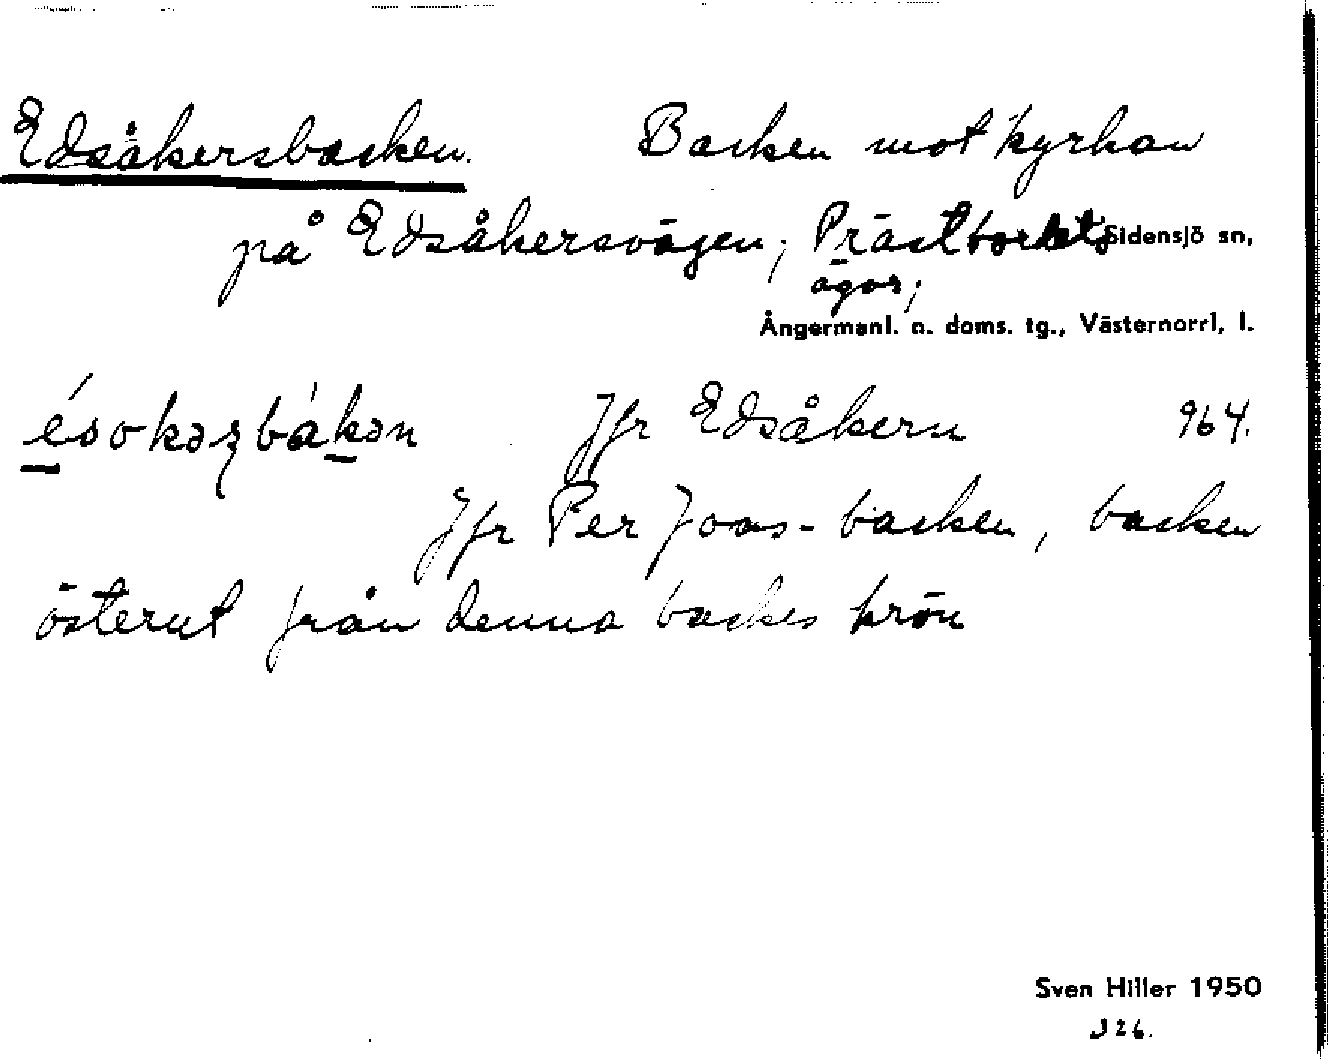 Edsåkersbacken. Backen mot kyrkan
på Edsåkersvägen; Prästbordets Sidensjö sn,
ägor;
Ångermanl. n. doms. tg., Västernorrl. l.
Jfr Edsåkern 964.
Jfr Per Joas-backen, backen
österut från denna backes krön
Sven Hiller 1950
J26.